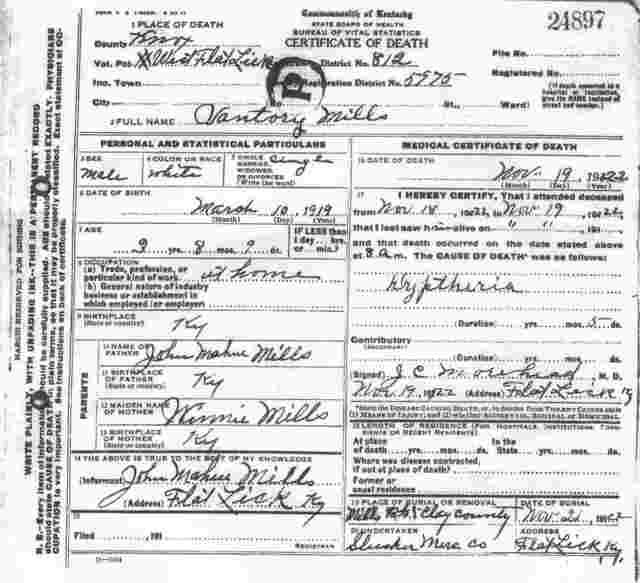 Commonwealth of Kentucky
STATE BOARD OF HEALTH
BUREAU OF VITAL STATISTICS
CERTIFICATE OF DEATH
24897
1 PLACE OF DEATH
County Knox
Vot. Pct West Flat Lick Registration District No. 812
Inc. Town Registration District No. 5975
City No. St. Ward)
File No.
Registered No.
(If death occurred in a hospital or institution, give its NAME instead of street and number.)
2 FULL NAME Vantory Mills
PERSONAL AND STATISTICAL PARTICULARS
3 SEX Male
4 COLOR OR RACE white
5 SINGLE, MARRIED, WIDOWED, OR DIVORCED (Write the word) Single
6 DATE OF BIRTH
March 10, 1919
(Month) (Day) (Year)
7 AGE
3 yrs. 8 mos. 9 ds.
IF LESS than 1 day hrs. or min.?
8 OCCUPATION
(a) Trade, profession, or particular kind of work at home
(b) General nature of industry business or establishment in which employed (or employer)
9 BIRTHPLACE
(State or country) Ky
PARENTS
10 NAME OF FATHER John Mahue Mills
11 BIRTHPLACE OF FATHER (State or country) Ky
12 MAIDEN NAME OF MOTHER Winnie Mills
13 BIRTHPLACE OF MOTHER (State or country) Ky
14 THE ABOVE IS TRUE TO THE BEST OF MY KNOWLEDGE
(Informant) John Mahue Mills
(Address) Flat Lick Ky
15
Filed , 191
REGISTRAR
MEDICAL CERTIFICATE OF DEATH
16 DATE OF DEATH
Nov. 19, 1922
(Month) (Day) (Year)
17 I HEREBY CERTIFY, That I attended deceased
from Nov 18, 1922, to Nov 19, 1922,
that I last saw him alive on " " , 191
and that death occurred on the date stated above
at 8 a m. The CAUSE OF DEATH* was as follows:
Dyptheria
(Duration) yrs. mos. 5 ds.
Contributory
(Secondary)
(Duration) yrs. mos. ds.
(Signed) J C Morehead M. D.
Nov 19, 1922 (Address) Flat Lick Ky
18 LENGTH OF RESIDENCE (FOR HOSPITALS, INSTITUTIONS, TRANSIENTS OR RECENT RESIDENTS)
At place of death yrs. mos. ds. In the State yrs. mos. ds.
Where was disease contracted, if not at place of death?
Former or usual residence
19 PLACE OF BURIAL OR REMOVAL
Mills Clay County
DATE OF BURIAL
Nov
20 UNDERTAKER
Slusher Merc Co
ADDRESS
Flat Lick Ky.
MARGIN RESERVED FOR BINDING
WRITE PLAINLY, WITH UNFADING INK—THIS IS A PERMANENT RECORD